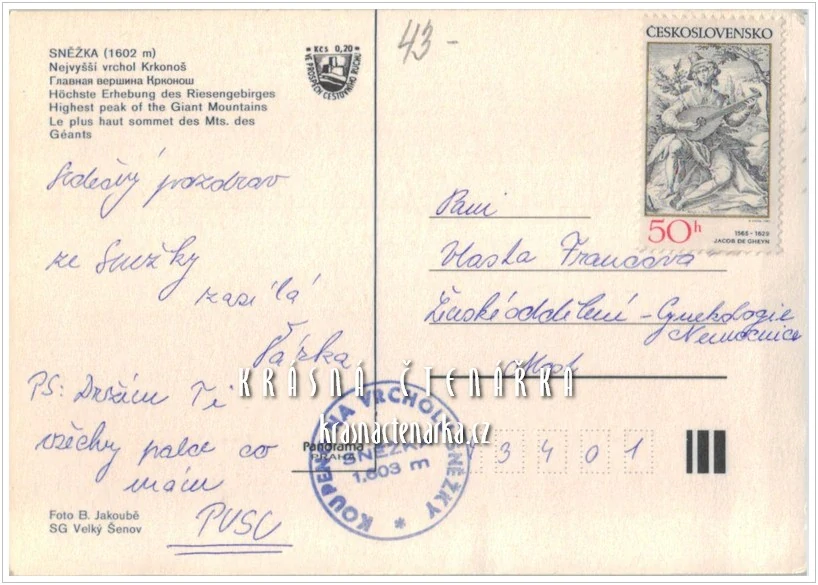 SNĚŽKA (1602 m)
Nejvyšší vrchol Krkonoš
Главная вершина Крконош
Höchste Erhebung des Riesengebirges
Highest peak of the Giant Mountains
Le plus haut sommet des Mts. des
Géants
Kčs 0,20
VE PROSPĚCH CESTOVNÍHO RUCHU
43-
ČESKOSLOVENSKO
50h
1565-1629
JACOB DE GHEYN
Srdečný pozdrav
ze Sněžky
zasílá
Šárka
PS: Držím Ti
všechny palce co
mám
PUSC
Paní
Vlasta Francová
Ženské oddělení - Gynekologie
Nemocnice
Most
43401
KRÁSNÁ ČTENÁŘKA
krasnactenarka.cz
Panorama
PRAHA
KOUPENO NA VRCHOLU SNĚŽKY
SNĚŽKA
1.603 m
Foto B. Jakoubě
SG Velký Šenov